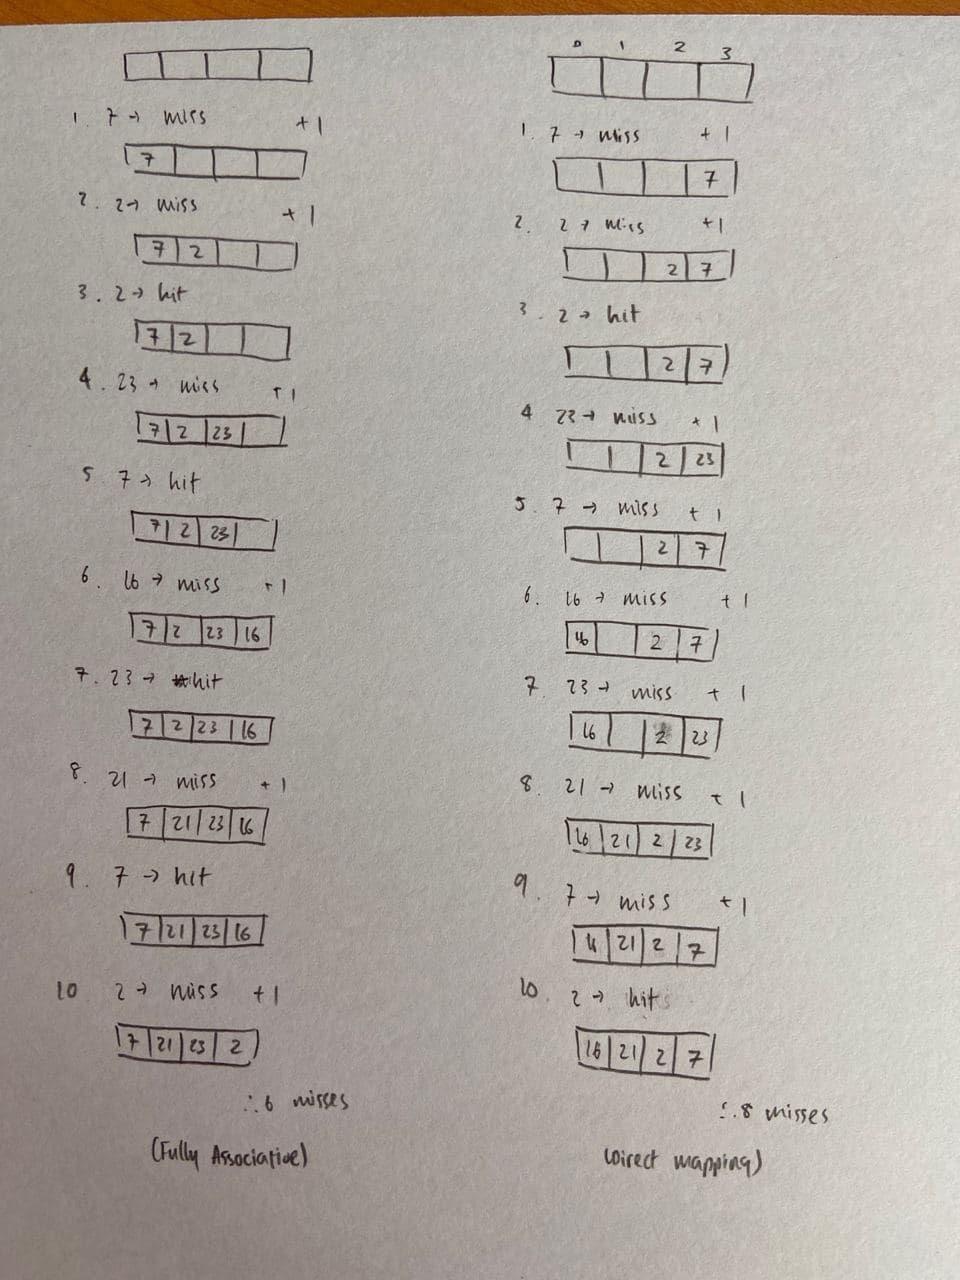 1. 7 → miss +1
7
2. 2 → miss +1
7 2
3. 2 → hit
7 2
4. 23 → miss +1
7 2 23
5 7 → hit
7 2 23
6. 16 → miss +1
7 2 23 16
7. 23 → hit
7 2 23 16
8. 21 → miss +1
7 21 23 16
9. 7 → hit
7 21 23 16
10 2 → miss +1
7 21 23 2
∴ 6 misses
(Fully Associative)
0 1 2 3
1. 7 → miss +1
7
2. 2 → miss +1
2 7
3. 2 → hit
2 7
4 23 → miss +1
2 23
5. 7 → miss +1
2 7
6. 16 → miss +1
16 2 7
7. 23 → miss +1
16 2 23
8. 21 → miss +1
16 21 2 23
9. 7 → miss +1
16 21 2 7
10. 2 → hit
16 21 2 7
∴ 8 misses
(Direct mapping)